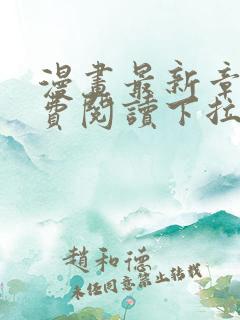 漫畫最新章
費閱讀下拉
趙和德
未經同意禁止轉載